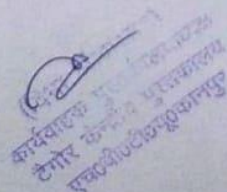 कार्यवाहक
टैगोर केन्द्रीय पुस्तकालय
एच०बी०टी०यू०कानपुर